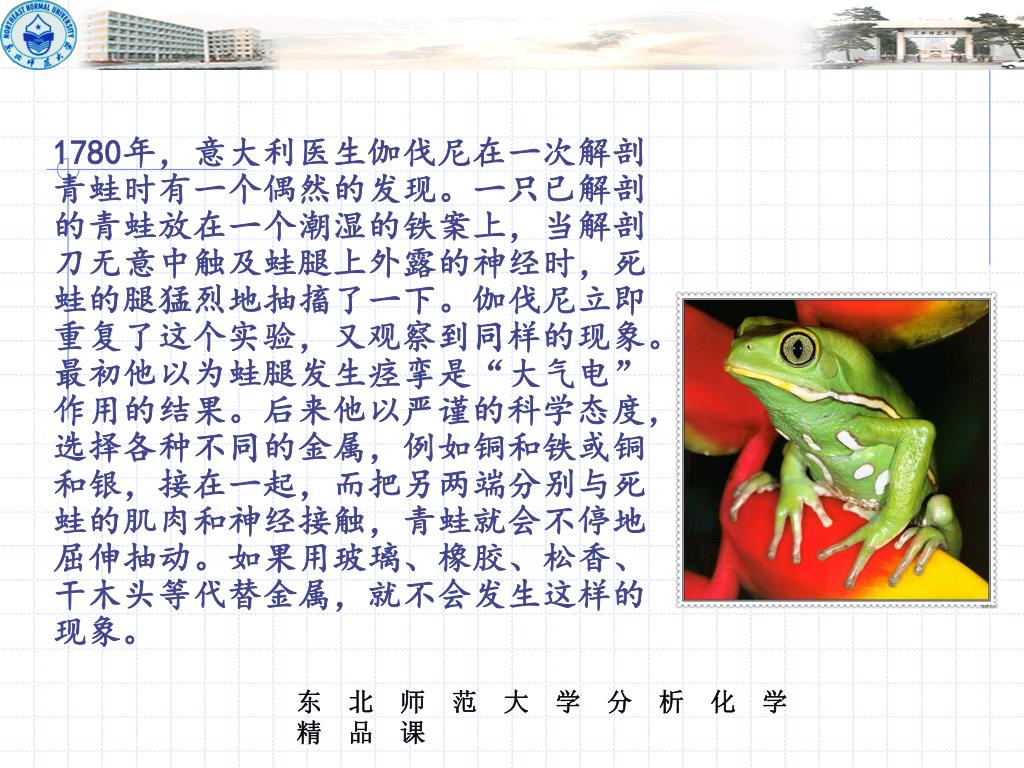 NORTHEAST NORMAL UNIVERSITY
东北师范大学
1780年，意大利医生伽伐尼在一次解剖
青蛙时有一个偶然的发现。一只已解剖
的青蛙放在一个潮湿的铁案上，当解剖
刀无意中触及蛙腿上外露的神经时，死
蛙的腿猛烈地抽搐了一下。伽伐尼立即
重复了这个实验，又观察到同样的现象。
最初他以为蛙腿发生痉挛是“大气电”
作用的结果。后来他以严谨的科学态度，
选择各种不同的金属，例如铜和铁或铜
和银，接在一起，而把另两端分别与死
蛙的肌肉和神经接触，青蛙就会不停地
屈伸抽动。如果用玻璃、橡胶、松香、
干木头等代替金属，就不会发生这样的
现象。
东 北 师 范 大 学 分 析 化 学
精 品 课